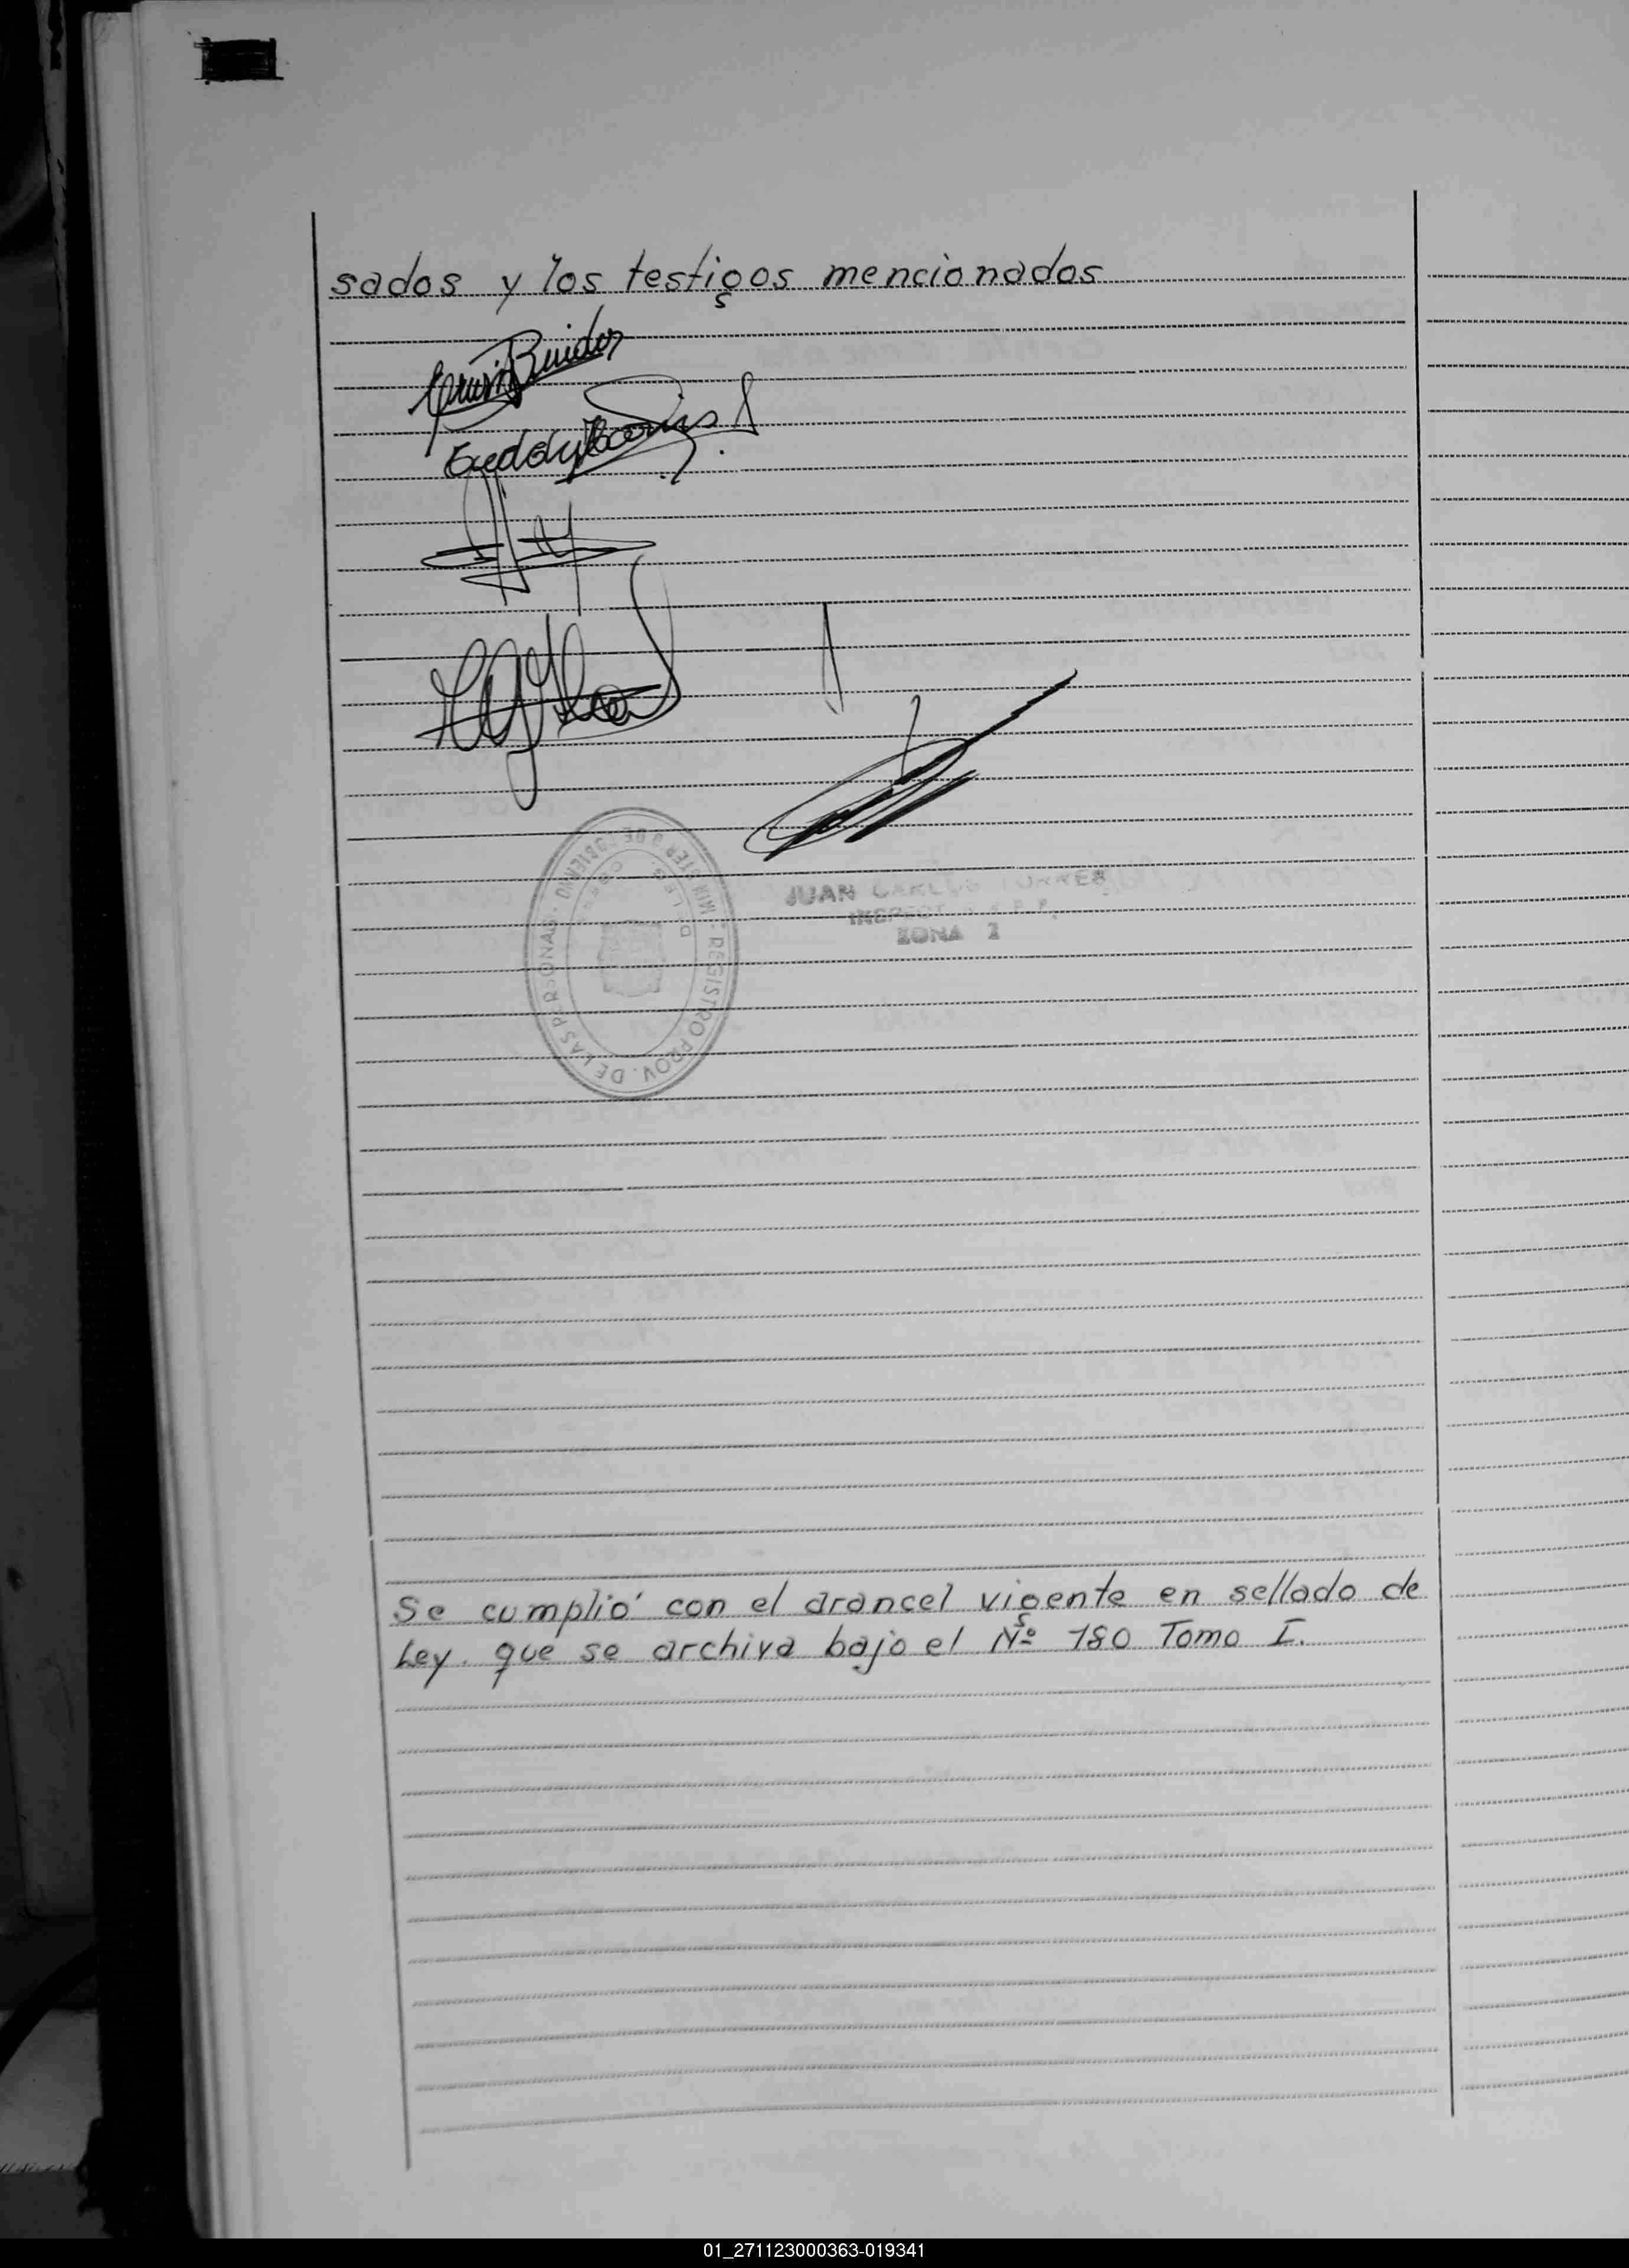 sados y los testigos mencionados
JUAN CARLOS TORRES
ZONA 2
REGISTRO PROV. DE LAS PERSONAS · MINISTERIO DE GOBIERNO
Se cumplió con el arancel vigente en sellado de
Ley. que se archiva bajo el Nº 180 Tomo I.
01_271123000363-019341